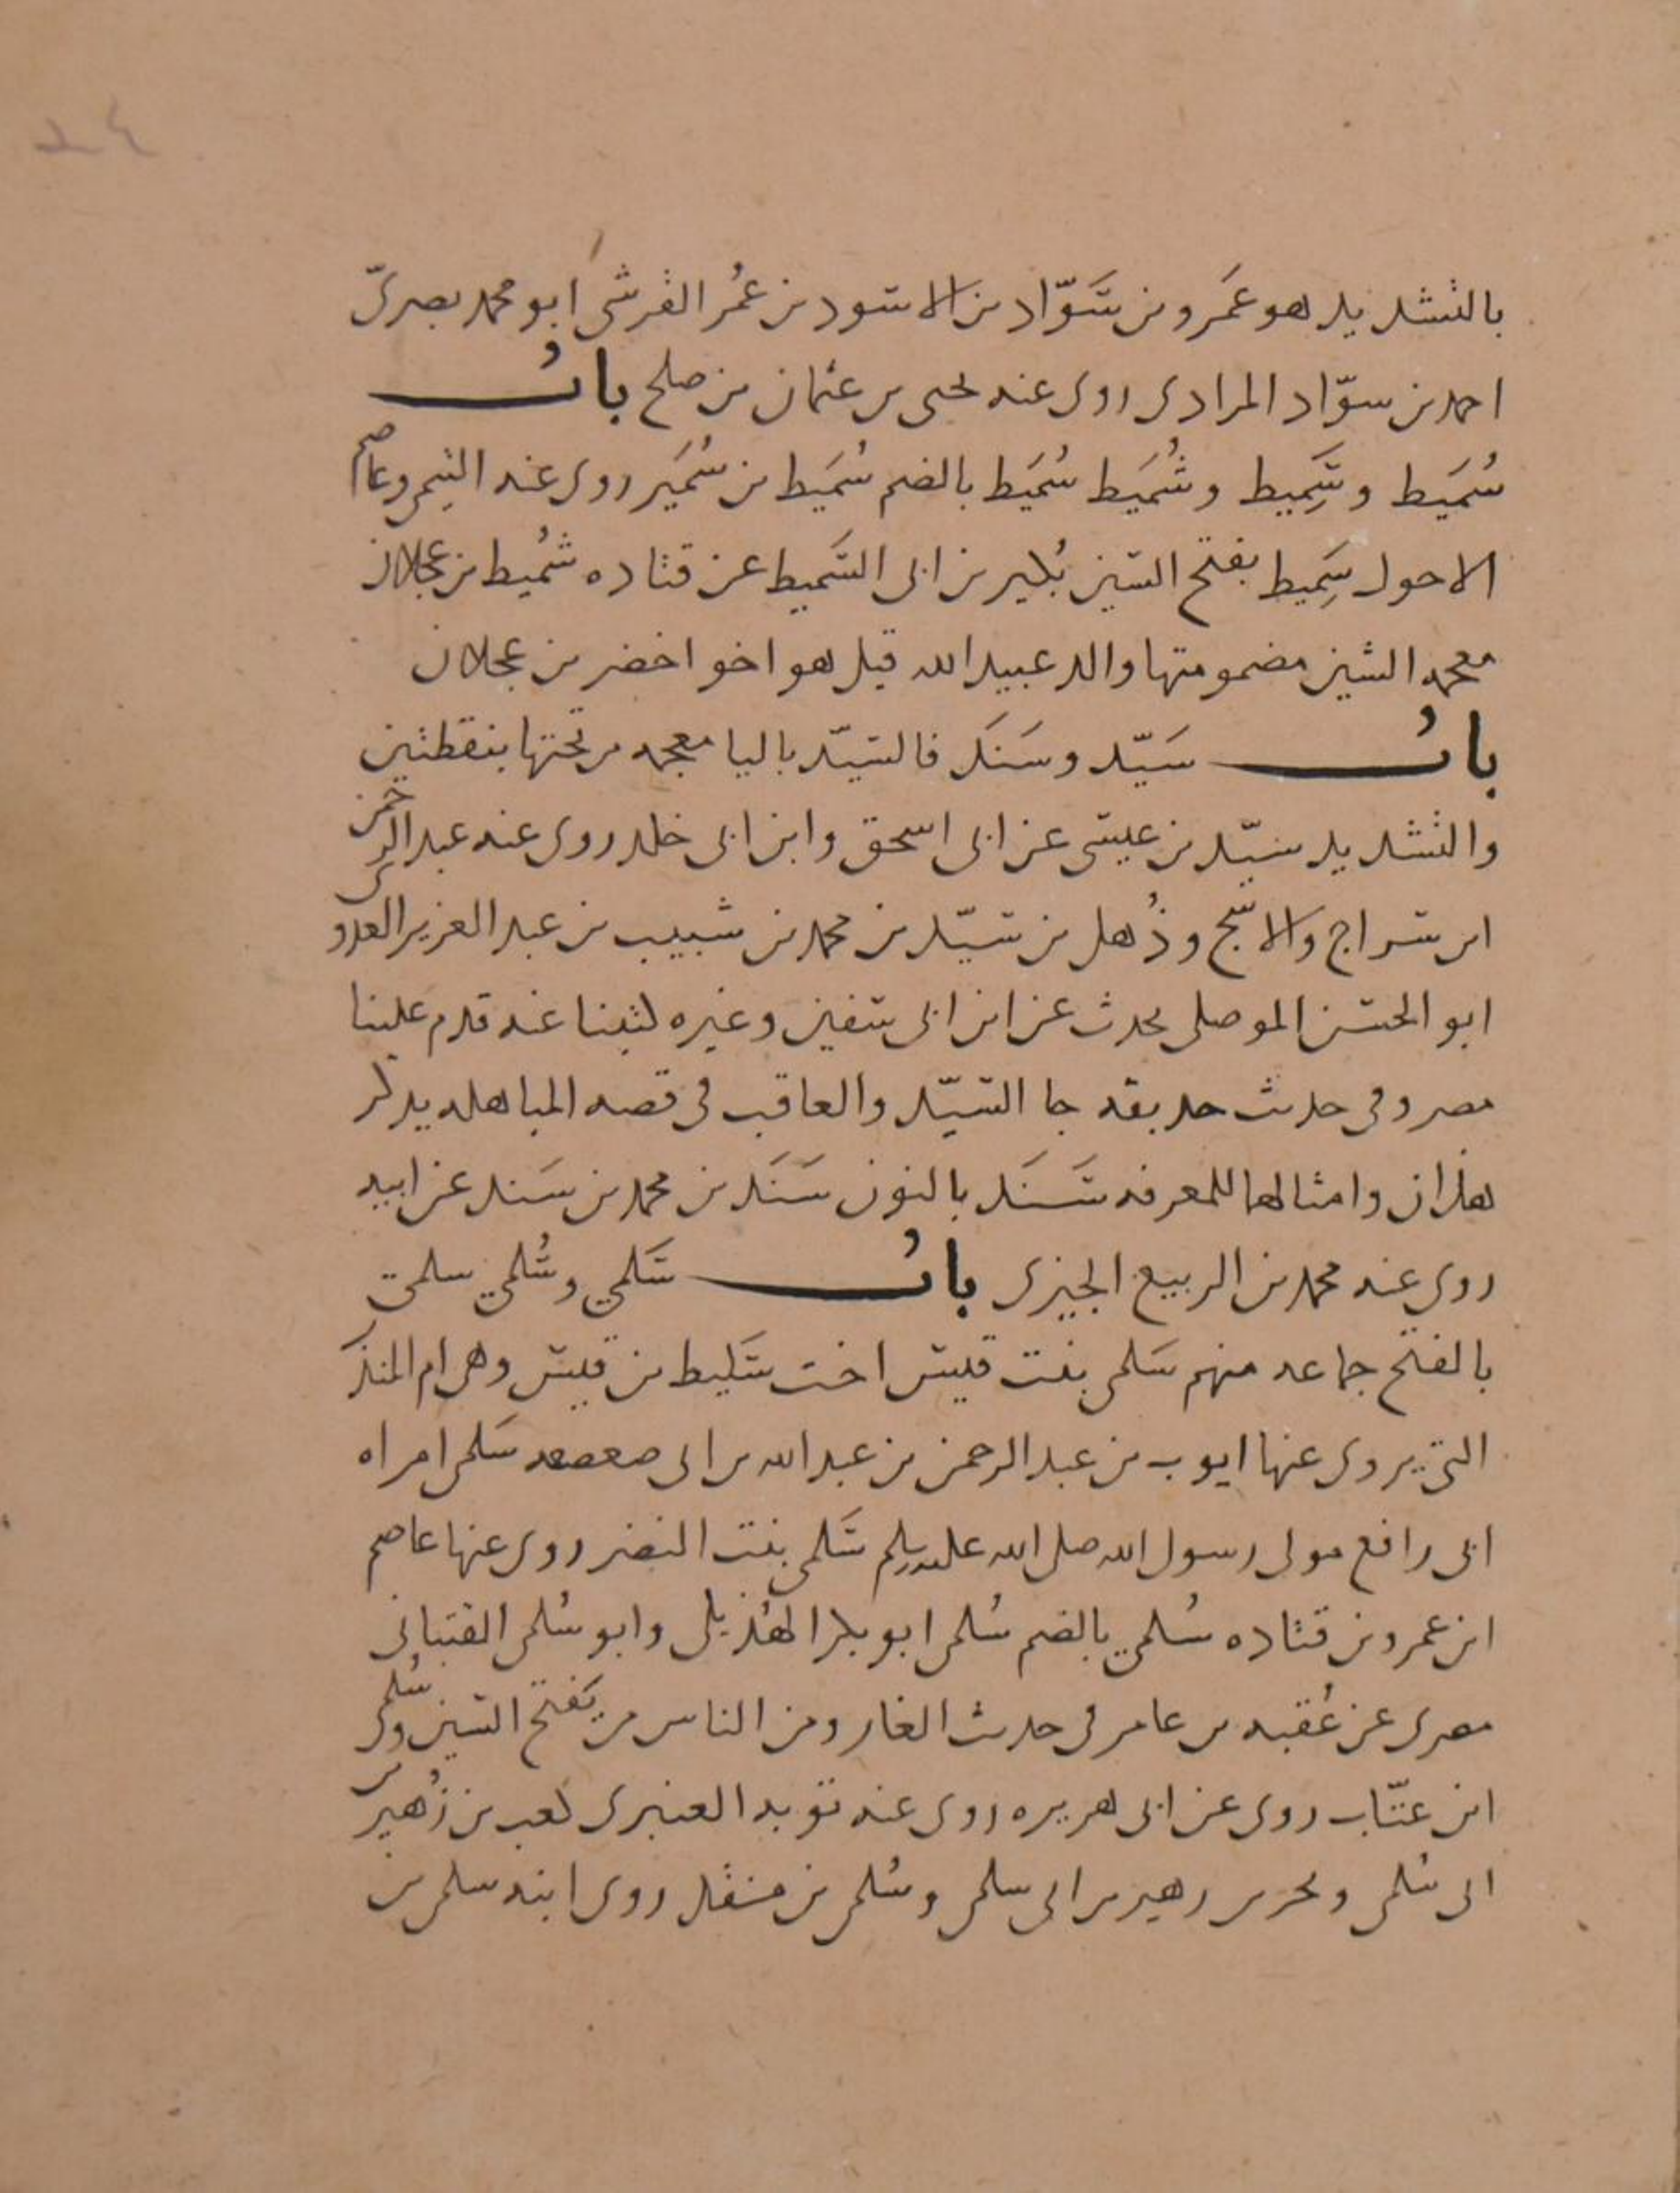 بالتشديد هو عَمرو بن سَوّاد بن الاسود بن عمُر القرشى ابو محمد بصرىّ
احمد بن سوّاد المرادى روى عنه يحيى بن عثمان بن صلح بابُ
سُمَيط وسَمِيط وشُمَيط سُمَيط بالضم سُمَيط بن سُمَير روى عنه التيمى وعاصم
الاحول سَمِيط بفتح السين بُكير بن ابى السَّميط عن قتاده شُميط بن عجلان
معجمه الشين مضمومتها والد عبيد الله قيل هو اخو اخضر بن عجلان
بابُ سَيّد وسَنَد فالسيّد باليا معجمه من تحتها بنقطتين
والتشديد سيّد بن عيسى عن ابى اسحق وابن ابى خلد روى عنه عبد الرحمن
ابن سراج والاشج وذُهل بن سيّد بن محمد بن شبيب بن عبد العزيز العدوى
ابو الحسن الموصلى يحدث عن ابن ابى سفين وغيره كتبنا عنه قدم علينا
مصر وفى حديث حذيفه جا السيّد والعاقب فى قصه المباهله يذكر
هذان وامثالهما للمعرفه سَنَد بالنون سَنَد بن محمد بن سَند عن ابيه
روى عنه محمد بن الربيع الجيزى بابُ سَلمي وسُلمي سلمى
بالفتح جماعه منهم سَلمى بنت قيس اخت سَليط بن قيس وهى ام المنذر
التى يروى عنها ايوب بن عبد الرحمن بن عبد الله بن ابى صعصعه سَلمى امراه
ابى رافع مولى رسول الله صلى الله عليه وسلم سَلمى بنت النضر روى عنها عاصم
ابن عمرو بن قتاده سُلمي بالضم سُلمى ابو بكر الهُذيلى وابو سُلمى القتبانى
مصرى عن عُقبه بن عامر فى حديث الغار ومن الناس من يَفتح السين وسُلمى
ابن عتّاب روى عن ابى هريره روى عنه توبه العنبرى كعب بن زُهير بن
ابى سُلمى وبجير بن زهير بن ابى سلمى وسُلمى بن منقذ روى ابنه سلمى بن